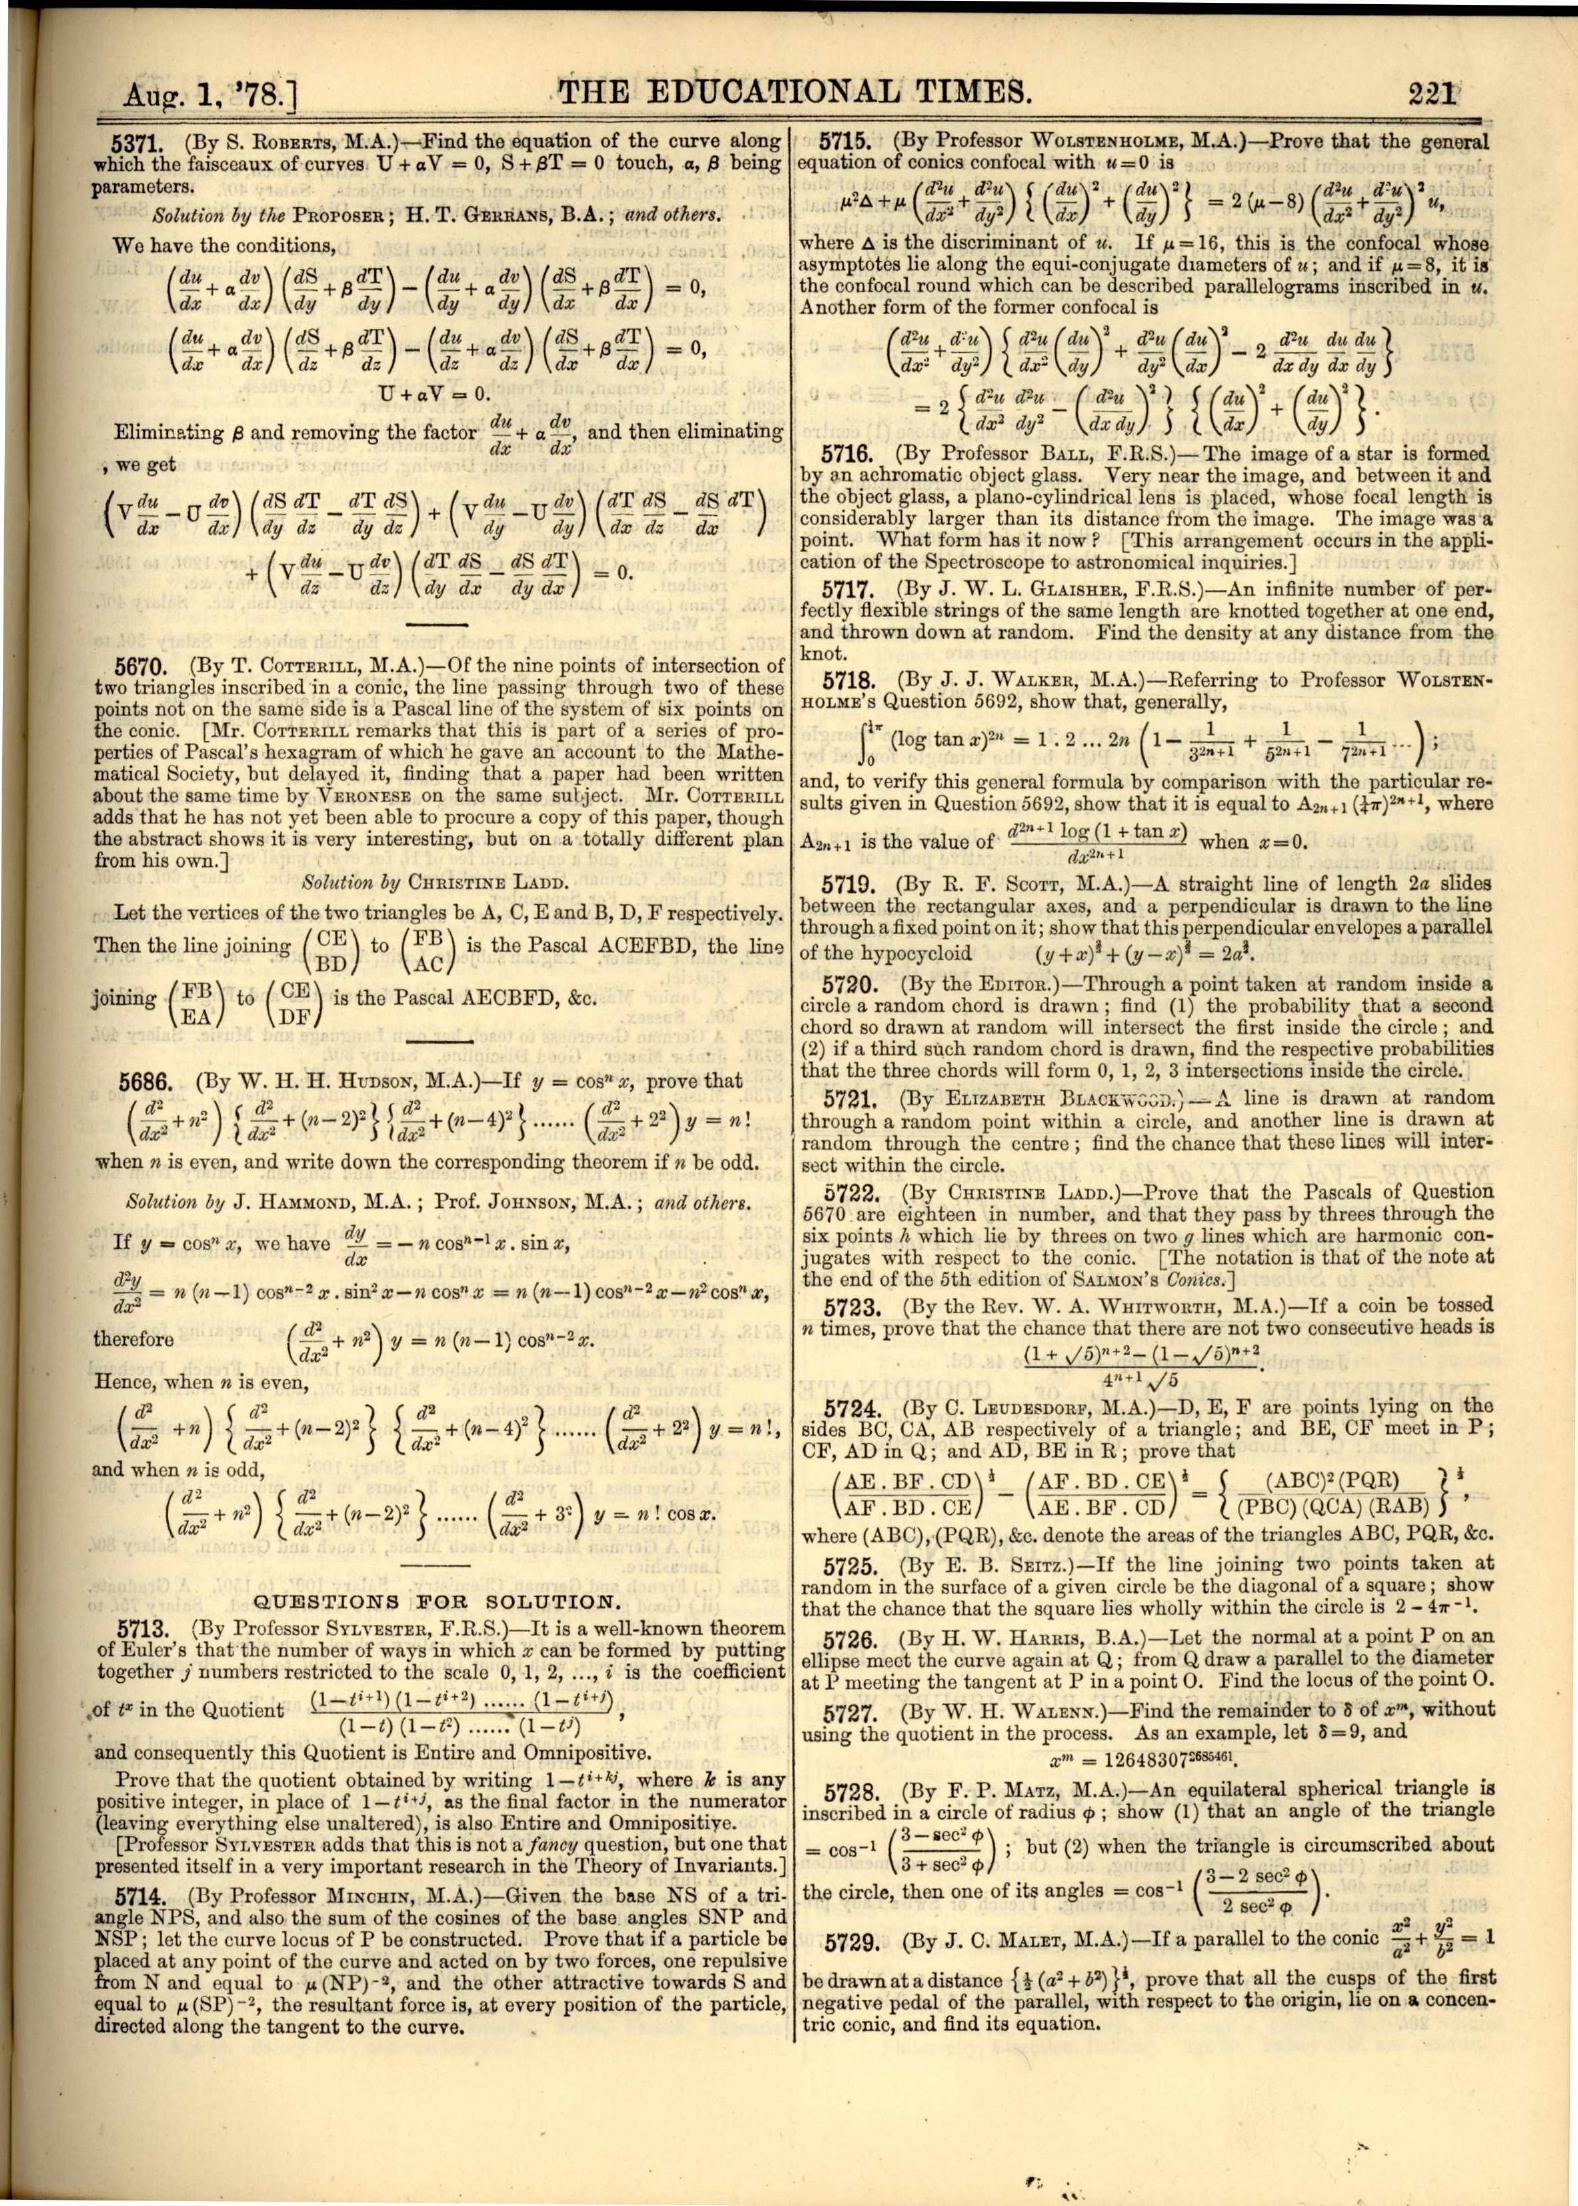 Aug. 1, '78.]
THE EDUCATIONAL TIMES.
221
5371. (By S. ROBERTS, M.A.)—Find the equation of the curve along
which the faisceaux of curves U + αV = 0, S + βT = 0 touch, α, β being
parameters.
Solution by the PROPOSER; H. T. GERRANS, B.A.; and others.
We have the conditions,
(du/dx + α dv/dx) (dS/dy + β dT/dy) − (du/dy + α dv/dy) (dS/dx + β dT/dx) = 0,
(du/dx + α dv/dx) (dS/dz + β dT/dz) − (du/dz + α dv/dz) (dS/dx + β dT/dx) = 0,
U + αV = 0.
Eliminating β and removing the factor du/dx + α dv/dx, and then eliminating
, we get
(V du/dx − U dv/dx) (dS/dy dT/dz − dT/dy dS/dz) + (V du/dy − U dv/dy) (dT/dx dS/dz − dS/dx dT)
+ (V du/dz − U dv/dz) (dT/dy dS/dx − dS/dy dT/dx) = 0.
5670. (By T. COTTERILL, M.A.)—Of the nine points of intersection of
two triangles inscribed in a conic, the line passing through two of these
points not on the same side is a Pascal line of the system of six points on
the conic. [Mr. COTTERILL remarks that this is part of a series of pro-
perties of Pascal's hexagram of which he gave an account to the Mathe-
matical Society, but delayed it, finding that a paper had been written
about the same time by VERONESE on the same subject. Mr. COTTERILL
adds that he has not yet been able to procure a copy of this paper, though
the abstract shows it is very interesting, but on a totally different plan
from his own.]
Solution by CHRISTINE LADD.
Let the vertices of the two triangles be A, C, E and B, D, F respectively.
Then the line joining (CE/BD) to (FB/AC) is the Pascal ACEFBD, the line
joining (FB/EA) to (CE/DF) is the Pascal AECBFD, &c.
5686. (By W. H. H. HUDSON, M.A.)—If y = cosⁿ x, prove that
(d²/dx² + n²) {d²/dx² + (n−2)²} {d²/dx² + (n−4)²} ...... (d²/dx² + 2²) y = n!
when n is even, and write down the corresponding theorem if n be odd.
Solution by J. HAMMOND, M.A.; Prof. JOHNSON, M.A.; and others.
If y = cosⁿ x, we have dy/dx = − n cosⁿ⁻¹ x . sin x,
d²y/dx² = n (n−1) cosⁿ⁻² x . sin² x − n cosⁿ x = n (n−1) cosⁿ⁻² x − n² cosⁿ x,
therefore (d²/dx² + n²) y = n (n−1) cosⁿ⁻² x.
Hence, when n is even,
(d²/dx² + n) {d²/dx² + (n−2)²} {d²/dx² + (n−4)²} ...... (d²/dx² + 2²) y = n!,
and when n is odd,
(d²/dx² + n²) {d²/dx² + (n−2)²} ...... (d²/dx² + 3²) y = n! cos x.
QUESTIONS FOR SOLUTION.
5713. (By Professor SYLVESTER, F.R.S.)—It is a well-known theorem
of Euler's that the number of ways in which x can be formed by putting
together j numbers restricted to the scale 0, 1, 2, ..., i is the coefficient
of tˣ in the Quotient (1−t^(i+1)) (1−t^(i+2)) ...... (1−t^(i+j)) / (1−t) (1−t²) ...... (1−t^j),
and consequently this Quotient is Entire and Omnipositive.
Prove that the quotient obtained by writing 1−t^(i+kj), where k is any
positive integer, in place of 1−t^(i+j), as the final factor in the numerator
(leaving everything else unaltered), is also Entire and Omnipositive.
[Professor SYLVESTER adds that this is not a fancy question, but one that
presented itself in a very important research in the Theory of Invariants.]
5714. (By Professor MINCHIN, M.A.)—Given the base NS of a tri-
angle NPS, and also the sum of the cosines of the base angles SNP and
NSP; let the curve locus of P be constructed. Prove that if a particle be
placed at any point of the curve and acted on by two forces, one repulsive
from N and equal to μ (NP)⁻², and the other attractive towards S and
equal to μ (SP)⁻², the resultant force is, at every position of the particle,
directed along the tangent to the curve.
5715. (By Professor WOLSTENHOLME, M.A.)—Prove that the general
equation of conics confocal with u = 0 is
μ²Δ + μ (d²u/dx² + d²u/dy²) {(du/dx)² + (du/dy)²} = 2 (μ−8) (d²u/dx² + d²u/dy²)² u,
where Δ is the discriminant of u. If μ = 16, this is the confocal whose
asymptotes lie along the equi-conjugate diameters of u; and if μ = 8, it is
the confocal round which can be described parallelograms inscribed in u.
Another form of the former confocal is
(d²u/dx² + d²u/dy²) {d²u/dx² (du/dy)² + d²u/dy² (du/dx)² − 2 d²u/dx dy du/dx du/dy}
= 2 {d²u/dx² d²u/dy² − (d²u/dx dy)²} {(du/dx)² + (du/dy)²}.
5716. (By Professor BALL, F.R.S.)—The image of a star is formed
by an achromatic object glass. Very near the image, and between it and
the object glass, a plano-cylindrical lens is placed, whose focal length is
considerably larger than its distance from the image. The image was a
point. What form has it now? [This arrangement occurs in the appli-
cation of the Spectroscope to astronomical inquiries.]
5717. (By J. W. L. GLAISHER, F.R.S.)—An infinite number of per-
fectly flexible strings of the same length are knotted together at one end,
and thrown down at random. Find the density at any distance from the
knot.
5718. (By J. J. WALKER, M.A.)—Referring to Professor WOLSTEN-
HOLME'S Question 5692, show that, generally,
∫₀^(½π) (log tan x)²ⁿ = 1 . 2 ... 2n (1 − 1/3²ⁿ⁺¹ + 1/5²ⁿ⁺¹ − 1/7²ⁿ⁺¹ ...);
and, to verify this general formula by comparison with the particular re-
sults given in Question 5692, show that it is equal to A₂ₙ₊₁ (¼π)²ⁿ⁺¹, where
A₂ₙ₊₁ is the value of d²ⁿ⁺¹ log (1 + tan x)/dx²ⁿ⁺¹ when x = 0.
5719. (By R. F. SCOTT, M.A.)—A straight line of length 2a slides
between the rectangular axes, and a perpendicular is drawn to the line
through a fixed point on it; show that this perpendicular envelopes a parallel
of the hypocycloid (y + x)^⅔ + (y − x)^⅔ = 2a^⅔.
5720. (By the EDITOR.)—Through a point taken at random inside a
circle a random chord is drawn; find (1) the probability that a second
chord so drawn at random will intersect the first inside the circle; and
(2) if a third such random chord is drawn, find the respective probabilities
that the three chords will form 0, 1, 2, 3 intersections inside the circle.
5721. (By ELIZABETH BLACKWOOD.)—A line is drawn at random
through a random point within a circle, and another line is drawn at
random through the centre; find the chance that these lines will inter-
sect within the circle.
5722. (By CHRISTINE LADD.)—Prove that the Pascals of Question
5670 are eighteen in number, and that they pass by threes through the
six points h which lie by threes on two g lines which are harmonic con-
jugates with respect to the conic. [The notation is that of the note at
the end of the 5th edition of SALMON'S Conics.]
5723. (By the Rev. W. A. WHITWORTH, M.A.)—If a coin be tossed
n times, prove that the chance that there are not two consecutive heads is
(1 + √5)ⁿ⁺² − (1 − √5)ⁿ⁺² / 4ⁿ⁺¹ √5.
5724. (By C. LEUDESDORF, M.A.)—D, E, F are points lying on the
sides BC, CA, AB respectively of a triangle; and BE, CF meet in P;
CF, AD in Q; and AD, BE in R; prove that
(AE . BF . CD / AF . BD . CE)^½ − (AF . BD . CE / AE . BF . CD)^½ = {(ABC)² (PQR) / (PBC) (QCA) (RAB)}^½,
where (ABC), (PQR), &c. denote the areas of the triangles ABC, PQR, &c.
5725. (By E. B. SEITZ.)—If the line joining two points taken at
random in the surface of a given circle be the diagonal of a square; show
that the chance that the square lies wholly within the circle is 2 − 4π⁻¹.
5726. (By H. W. HARRIS, B.A.)—Let the normal at a point P on an
ellipse meet the curve again at Q; from Q draw a parallel to the diameter
at P meeting the tangent at P in a point O. Find the locus of the point O.
5727. (By W. H. WALENN.)—Find the remainder to δ of xᵐ, without
using the quotient in the process. As an example, let δ = 9, and
xᵐ = 126483072⁶⁸⁵⁴⁶¹.
5728. (By F. P. MATZ, M.A.)—An equilateral spherical triangle is
inscribed in a circle of radius φ; show (1) that an angle of the triangle
= cos⁻¹ (3 − sec² φ / 3 + sec² φ); but (2) when the triangle is circumscribed about
the circle, then one of its angles = cos⁻¹ (3 − 2 sec² φ / 2 sec² φ).
5729. (By J. C. MALET, M.A.)—If a parallel to the conic x²/a² + y²/b² = 1
be drawn at a distance {½ (a² + b²)}^½, prove that all the cusps of the first
negative pedal of the parallel, with respect to the origin, lie on a concen-
tric conic, and find its equation.